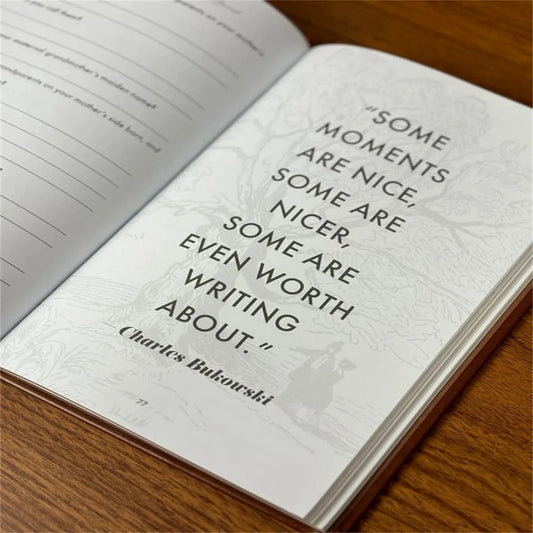 parents on your mother's
you call them?
your maternal grandmother's maiden name?
grandparents on your mother's side born, and
"SOME
MOMENTS
ARE NICE,
SOME ARE
NICER,
SOME ARE
EVEN WORTH
WRITING
ABOUT."
— Charles Bukowski
77